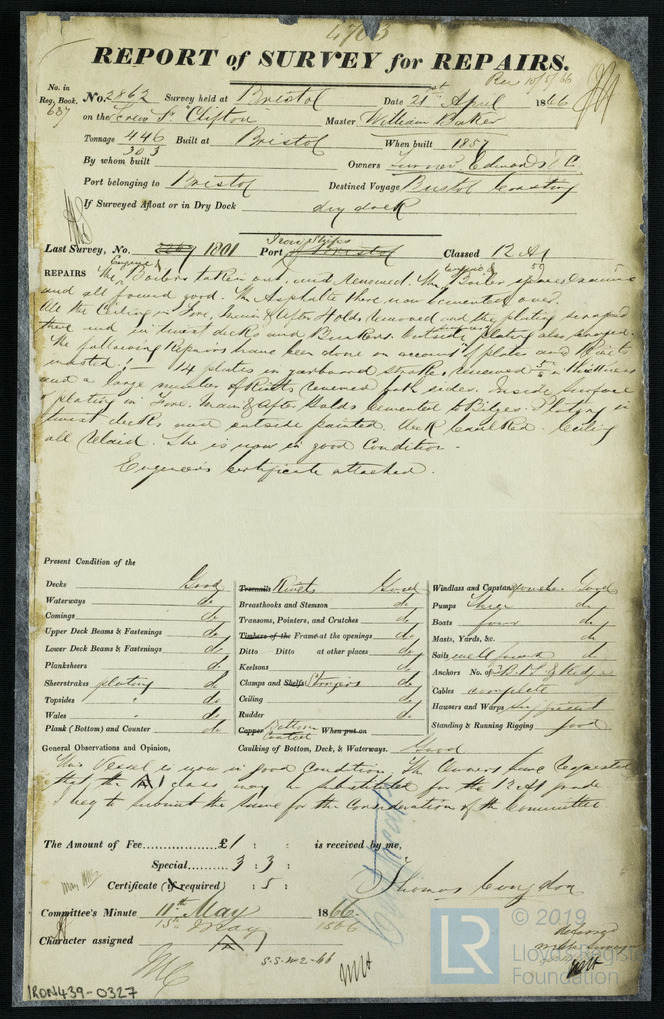 4763
REPORT of SURVEY for REPAIRS.
Rec 10/5/66
No. in Reg. Book. 637
No. 2862 Survey held at Bristol Date 21st April 1866
on the "Clifton" Master William Baker
Tonnage 446 303 Built at Bristol When built 1857
By whom built Owners Turner Edwards & C
Port belonging to Bristol Destined Voyage Bristol Coasting
If Surveyed Afloat or in Dry Dock dry dock
Iron Ships
Last Survey, No. 1801 Port Bristol Classed 12 A1
REPAIRS The Engine & Boilers taken out, and renewed. The Engine & Boiler spaces
and all found good. The Asphalte there now cemented over.
All the Ceiling in Fore, Main & After Holds removed and the plating scraped
there and in twixt decks and Bunkers. Outside plating also scraped.
The following Repairs have been done on account of plates and Rivets
wasted: 14 plates in garboard strake renewed in thickness
and a large number of Rivets renewed both sides. Inside surface
of plating in Fore, Main & After Holds cemented to Bilges. Plating in
twixt decks and outside painted. deck Caulked. Ceiling
all relaid. She is now in good Condition.
Engineer's Certificate attached.
Present Condition of the
Decks Good
Waterways do
Comings do
Upper Deck Beams & Fastenings do
Lower Deck Beams & Fastenings do
Planksheers do
Sheerstrakes plating do
Topsides " do
Wales " do
Plank (Bottom) and Counter do
Treenails Rivets Good
Breasthooks and Stemson do
Transoms, Pointers, and Crutches do
Timbers of the Frame at the openings do
Ditto Ditto at other places do
Keelsons do
Clamps and Shelfs Stringers do
Ceiling do
Rudder do
Copper Bottom Coated When put on
Caulking of Bottom, Deck, & Waterways. Good
Windlass and Capstan Good
Pumps three do
Boats four do
Masts, Yards, &c. do
Sails well found do
Anchors No. of 3 B. & Kedges
Cables complete
Hawsers and Warps sufficient
Standing & Running Rigging good
General Observations and Opinion,
This Vessel is now in good Condition. The Owners have requested
that the A 1 class may be substituted for the 12 A1 grade
I beg to submit the same for the Consideration of the Committee
The Amount of Fee £1 : : is received by me,
Special 3 : 3 :
Certificate (if required) : 5 :
Thomas Congdon
Committee's Minute 11th May 1866.
15th May 1866
Character assigned A 1
S.S. No 2-66
IRON439-0327
LR
© 2019
Lloyd's Register
Foundation